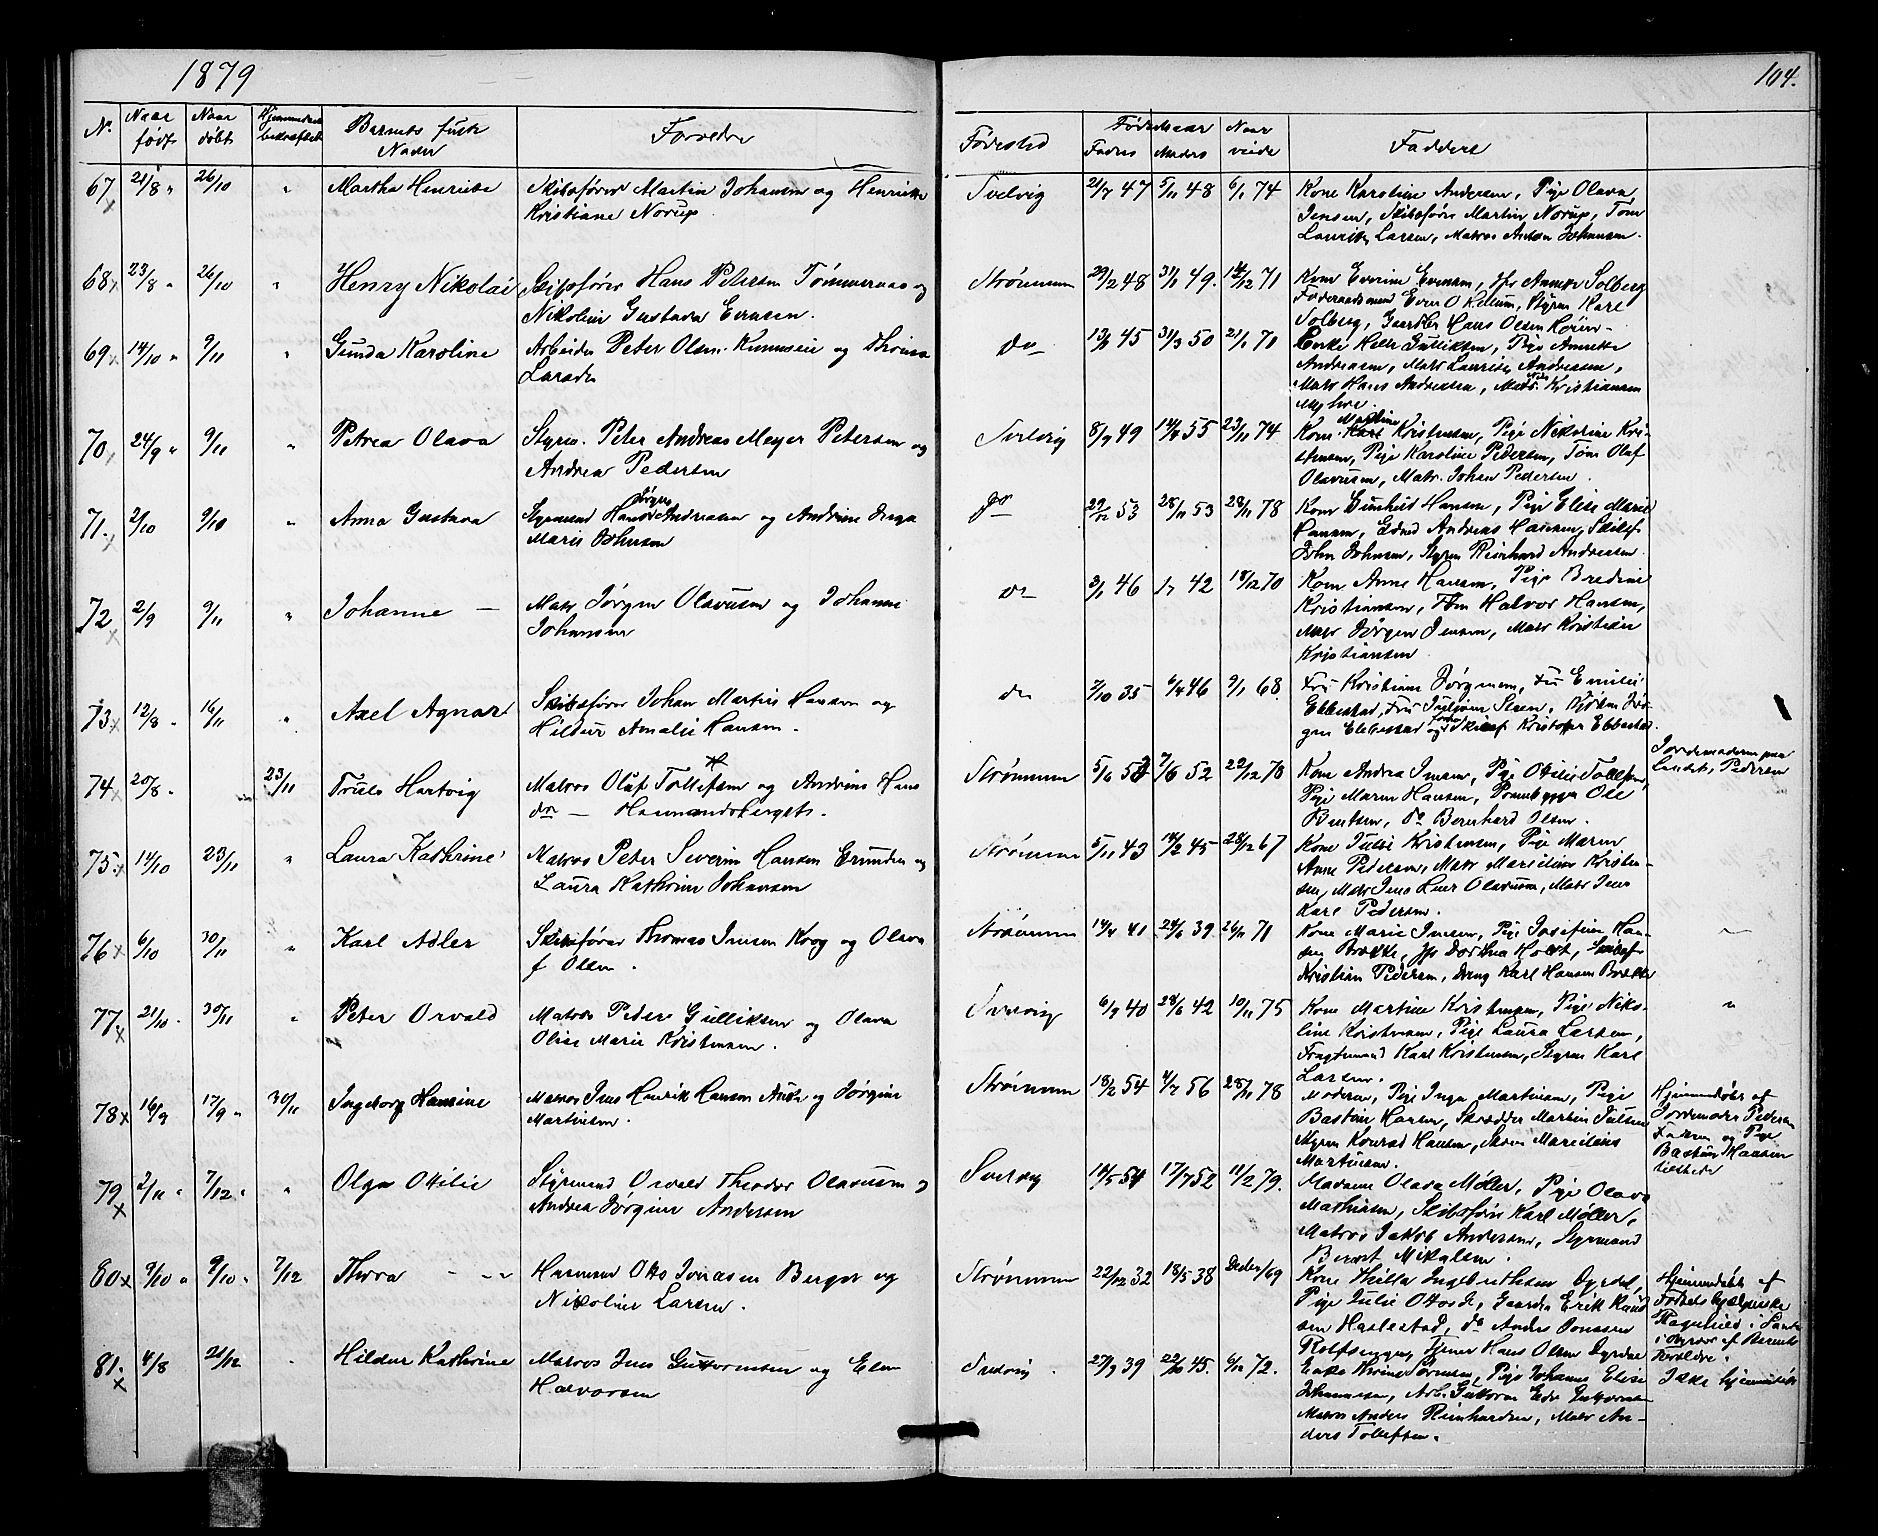 1879
104.
No.
Naar født
Naar døbt
Hjemmedaab bekræftet
Barnets fulde Navn
Forældre
Fødested
Fødselsaar
Faders
Moders
Naar viede
Faddere
67 21/8 " 26/10 " Martha Henriette
Skibsfører Martin Johansen og Henriette
Kristiane Norup.
Svelvig 21/7 47 5/11 48 6/1 74
Kone Karoline Andersen, Pige Olava
Jensen, Skibsfører Martin Norup, Tøm
Lauritz Larsen, Matros Anton Johansen.
68 23/8 " 26/10 " Henry Nikolai
Skipsfører Hans Petersen Tømmeraas og
Nikoline Gustava Evensen.
Strømmen 29/12 48 31/1 49. 71
Kone Everine Evensen, Solberg
Styrm Karl
Solberg, Hans Olsen
69 14/10 " 9/11 " Gunda Karoline
Arbeider Peter Olsen og
Larsdr
do 45 31/3 50 21/1 70
Enke Gulliksen, Pige Annette
Andreasen, Matr Lauritz Andreasen,
Matr Hans Andreasen, Kristiansen
70 24/9 " 9/11 " Petrea Olava
Styrm. Peter Andreas Meyer Petersen og
Andrea Pedersen
Svelvig 8/9 49 55 23/11 74
Kone Martine Kristensen, Pige Nikoline Kri-
stensen, Pige Karoline Pedersen, Tøm Olaf
Olavusen, Matr. Johan Pedersen.
71. 2/10 9/10 " Anna Gustava
Styrmand Hans Jørgen Andreasen og Andrine
Marie Johnsen
do 53 28/11 53 28/11 78
Kone Gunhild Hansen, Pige Elise Marie
Hansen, Andreas Hansen, Skibsf.
John Johnsen, Styrm Reinhard Andreasen.
72 2/9 9/11 " Johanne —
Matr Jørgen Olavusen og Johanne
Johansen
do 3/1 46 42 18/12 70
Kone Anne Hansen, Pige Bredine
Kristiansen, Tøm Halvor Hansen,
Matr Jørgen Jensen, Matr Kristian
Kristiansen
73 12/8 " 16/11 " Axel Agnar
Skibsfører Johan Martin Hansen og
Hildur Amalie Hansen.
do 7/10 35 6/4 46 9/1 68.
Fru Kristiane Jørgensen, Fru Emilie
Ebbestad, Fru
gen Ebbestad og Kristoffer Ebbestad.
74 20/8 . 23/11 Truls Hartvig
Matros Olaf Tollefsen og Andrine Hans
dr — Hesmandsberget.
Strømmen 5/6 7/6 52 22/12 78
Kone Andrea Jensen, Pige Otilie Tollefsen,
Pige Maren Hansen, Ole
Bentsen, do Bernhard Olsen.
Jordemoderen paa
Landet, Pedersen
75 14/10 23/11 " Laura Kathrine
Matros Peter Severin Hansen Grunden og
Laura Kathrine Johansen
Strømmen 5/11 43 14/2 45 67
Kone Julie Kristensen, Pige Maren
Anne Pedersen, Matr Marcilius Kristen-
sen, Matr Jens Olavusen, Matr Jens
Karl Pedersen.
76 6/10 30/11 " Karl Adler
Skibsfører Thomas Jensen Krog og Olava
f Olsen.
Strømmen 14/4 41 24/6 39 26/11 71
Kone Marie Jensen, Pige Josefine Han-
sen Brække, Jfr Dorthea Holst, Skibsf
Kristian Pedersen, Dreng Karl Hansen Brække
77 21/10 . 30/11 " Peter Orvald
Matros Peder Gulliksen og Olava
Oline Marie Kristensen.
Svelvig 6/9 40 28/6 42 10/11 75
Kone Martine Kristensen, Pige Niko-
line Kristensen, Pige Laura Larsen,
Fragtemand Karl Kristensen, Styrm Karl
Larsen.
"
78 16/9 17/9 " 30/11 Ingeborg Hansine
Matros Jens Henrik Hansen og Jørgine
Martinsen.
Strømmen 18/2 54 4/7 56 28/11 78
Moderen, Pige Inga Martinsen, Pige
Bastine Hansen, Skrædder Martin Julsen
Styrm Konrad Hansen, Marcilius
Martinsen.
Hjemmedøbt af
Jordemoder Pedersen
Faderen og Pige
Bastine Hansen
tilstede
79 2/11 " 7/12 " Olga Otilie
Styrmand Orvald Theodor Olavusen og
Andrea Jørgine Andersen
Svelvig 14/5 54 17/7 52 11/2 79.
Madame Olava Møller, Pige Olava
Mathisen, Skibsfører Karl Møller,
Matros Jakob Andersen, Styrmand
Berent Mikalsen.
80 9/10 " 9/10 " 7/12 Thora — " —
Husmand Otto Jonasen Berget og
Nikoline Larsen.
Strømmen 22/12 32 18/5 38 Decbr/69
Kone Hella Ingebrethsen Dyrdal,
Pige Julie Ottosdr, Gaardbr Erik Knud
sen Haslestad, do Anders Jonassen
Rolfseggen, Tjener Hans Olsen Dyrdal
Hjemmedøbt af
Fødselshjælperske
Ragnhild
af Barnets
Forældre.
81. 4/8 21/12 . Hildur Kathrine
Matros Jens Guttormsen og Elen
Halvorsen
Svelvig . 27/9 39 22/10 45. 6/12 72.
Enke Sørensen, Pige Johanne Elise
Johannesen, Arb. Guttorm
Matros Anders Reinhardsen, Matr An-
ders Tollefsen.
Ikke hjemmedøbt